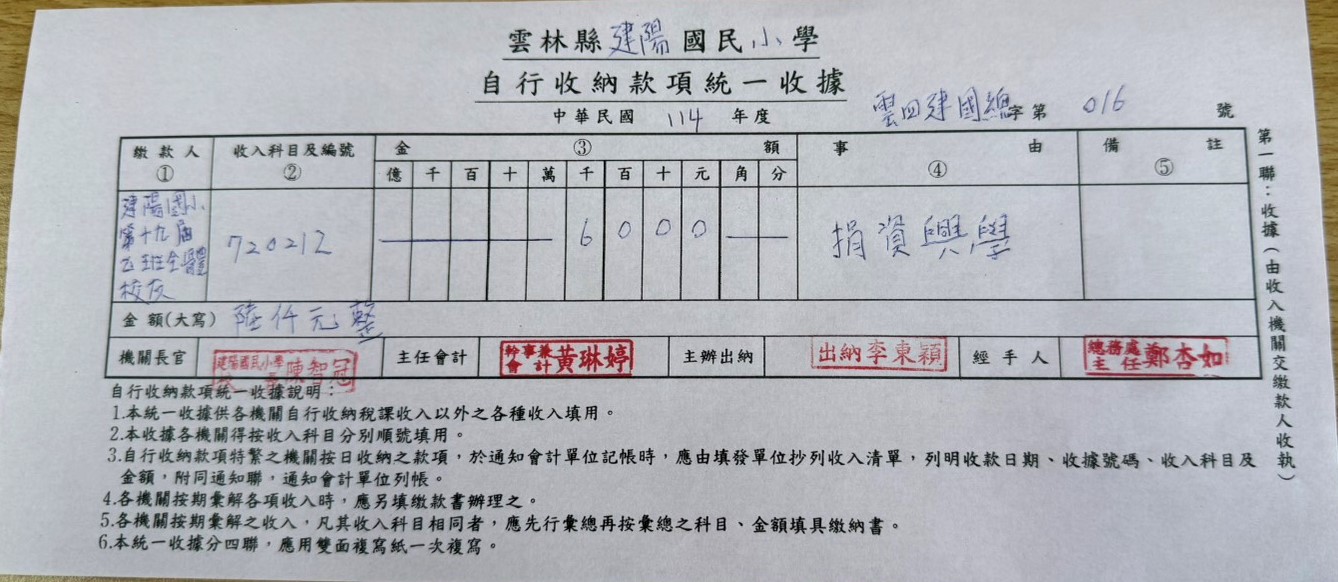 雲林縣建陽國民小學
自行收納款項統一收據
中華民國 114 年度
雲四建國總字第 016 號
繳款人 ①
收入科目及編號 ②
金 ③ 額
億 千 百 十 萬 千 百 十 元 角 分
事 由 ④
備 註 ⑤
建陽國小
第十九屆
乙班全體
校友
720212
6 0 0 0
捐資興學
金額(大寫) 陸仟元整
機關長官 建陽國民小學 陳智冠 主任會計 幹事兼會計 黃琳婷 主辦出納 出納李東穎 經手人 總務處主任 鄭杏如
第一聯：收據(由收入機關交繳款人收執)
自行收納款項統一收據說明：
1.本統一收據供各機關自行收納稅課收入以外之各種收入填用。
2.本收據各機關得按收入科目分別順號填用。
3.自行收納款項特繁之機關按日收納之款項，於通知會計單位記帳時，應由填發單位抄列收入清單，列明收款日期、收據號碼、收入科目及
金額，附同通知聯，通知會計單位列帳。
4.各機關按期彙解各項收入時，應另填繳款書辦理之。
5.各機關按期彙解之收入，凡其收入科目相同者，應先行彙總再按彙總之科目、金額填具繳納書。
6.本統一收據分四聯，應用雙面複寫紙一次複寫。